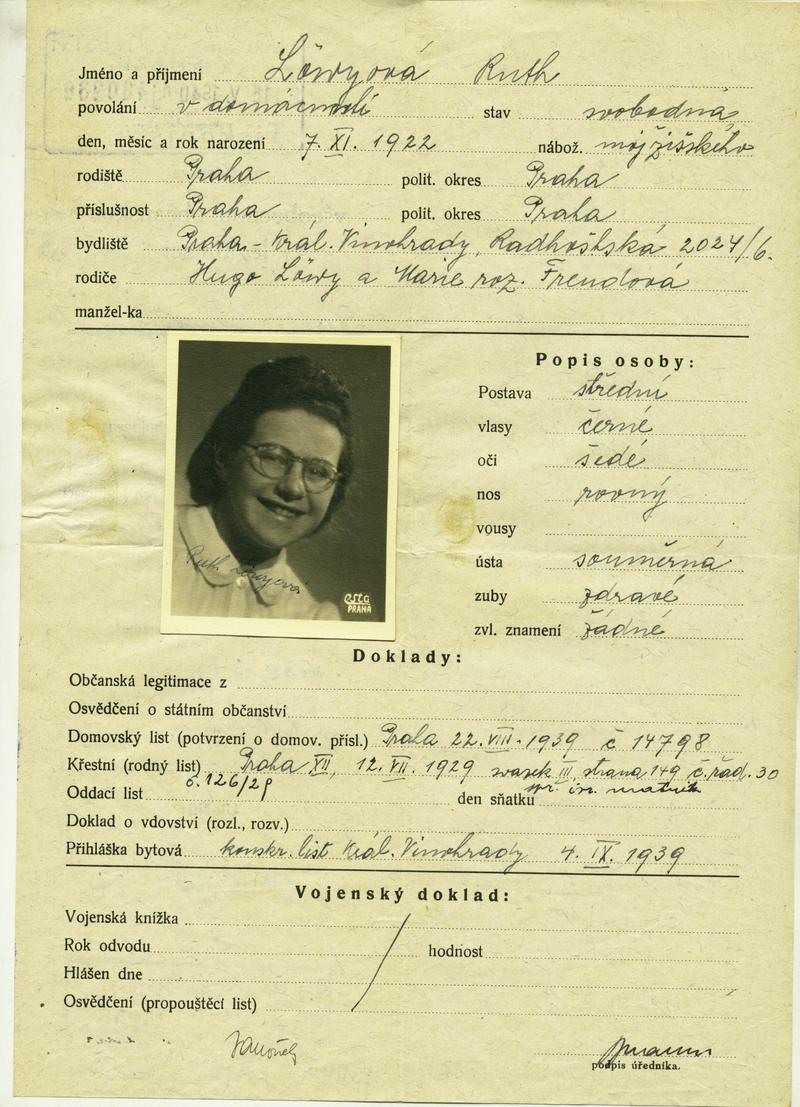 Jméno a příjmení Löwyová Ruth
povolání v domácnosti stav svobodná
den, měsíc a rok narození 7. XI. 1922 nábož. mojžíšského
rodiště Praha polit. okres Praha
příslušnost Praha polit. okres Praha
bydliště Praha - Král. Vinohrady, Radhošťská 2024/6.
rodiče Hugo Löwy a Marie roz. Freudová
manžel-ka
Popis osoby:
Postava střední
vlasy černé
oči šedé
nos rovný
vousy
ústa souměrná
zuby zdravé
zvl. znamení žádné
Ruth Löwyová
PRAHA
Doklady:
Občanská legitimace z
Osvědčení o státním občanství
Domovský list (potvrzení o domov. přísl.) Praha 22. VIII. 1939 č 14798
Křestní (rodný list) Praha XII, 12. VII. 1929 svazek III, strana 149 č. řad. 30
č. 126/29 matrik
Oddací list den sňatku
Doklad o vdovství (rozl., rozv.)
Přihláška bytová konskr. list Král. Vinohrady 4. IX. 1939
Vojenský doklad:
Vojenská knížka
Rok odvodu hodnost
Hlášen dne
Osvědčení (propouštěcí list)
podpis úředníka.